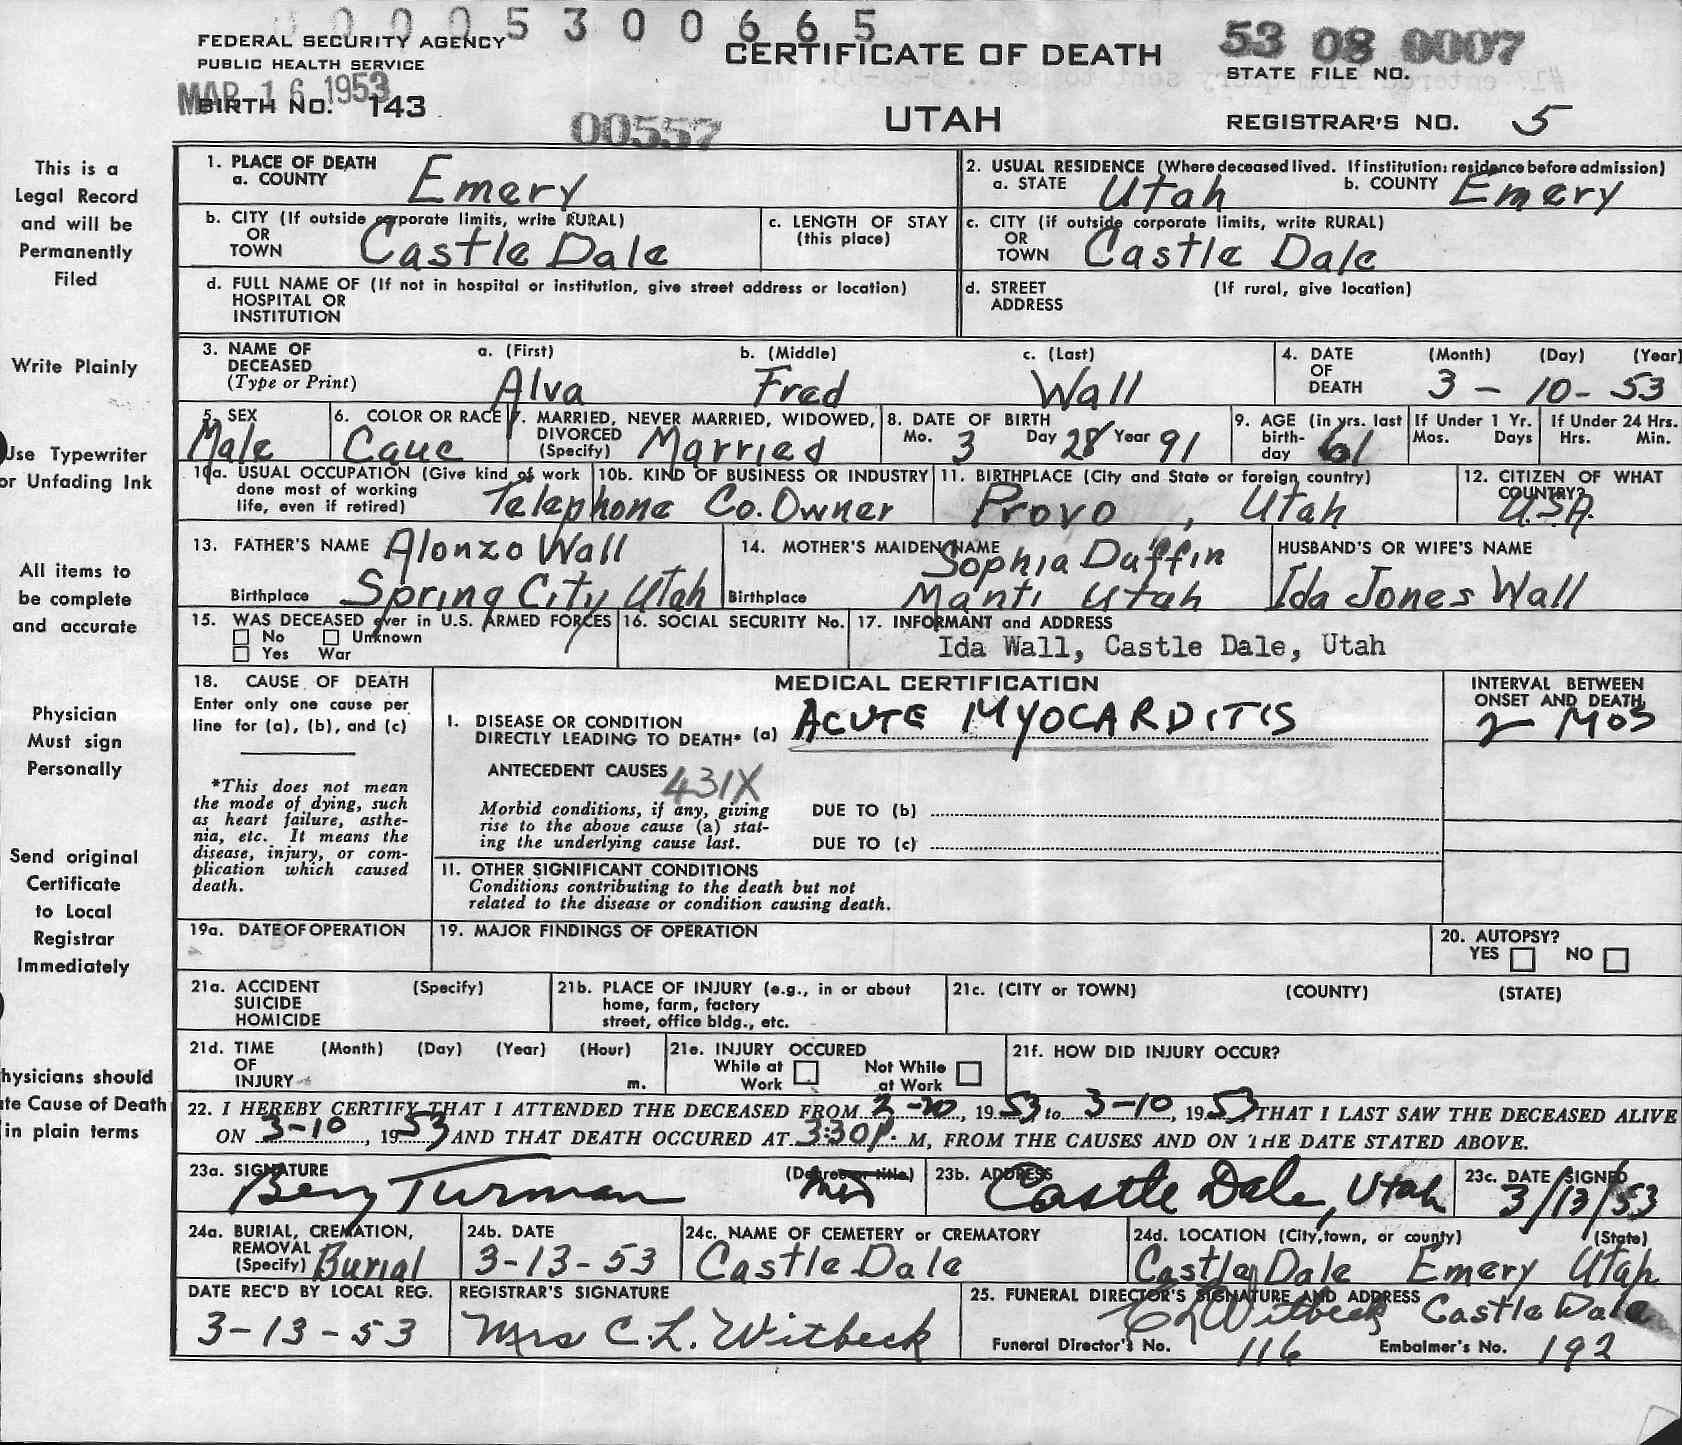 0005300665
FEDERAL SECURITY AGENCY
PUBLIC HEALTH SERVICE
MAR 16 1953
BIRTH NO. 143
00557
CERTIFICATE OF DEATH
UTAH
53 08 0007
STATE FILE NO.
REGISTRAR'S NO. 5
This is a
Legal Record
and will be
Permanently
Filed
Write Plainly
Use Typewriter
or Unfading Ink
All items to
be complete
and accurate
Physician
Must sign
Personally
Send original
Certificate
to Local
Registrar
Immediately
hysicians should
te Cause of Death
in plain terms
1. PLACE OF DEATH
a. COUNTY Emery
2. USUAL RESIDENCE (Where deceased lived. If institution: residence before admission)
a. STATE Utah b. COUNTY Emery
b. CITY (If outside corporate limits, write RURAL)
OR
TOWN Castle Dale
c. LENGTH OF STAY
(this place)
c. CITY (if outside corporate limits, write RURAL)
OR
TOWN Castle Dale
d. FULL NAME OF (If not in hospital or institution, give street address or location)
HOSPITAL OR
INSTITUTION
d. STREET (If rural, give location)
ADDRESS
3. NAME OF
DECEASED
(Type or Print)
a. (First) b. (Middle) c. (Last)
Alva Fred Wall
4. DATE
OF
DEATH
(Month) (Day) (Year)
3 - 10 - 53
5. SEX
Male
6. COLOR OR RACE
Cauc
7. MARRIED, NEVER MARRIED, WIDOWED,
DIVORCED
(Specify) Married
8. DATE OF BIRTH
Mo. 3 Day 28 Year 91
9. AGE (in yrs. last
birth-
day 61
If Under 1 Yr.
Mos. Days
If Under 24 Hrs.
Hrs. Min.
10a. USUAL OCCUPATION (Give kind of work
done most of working
life, even if retired)
10b. KIND OF BUSINESS OR INDUSTRY
Telephone Co. Owner
11. BIRTHPLACE (City and State or foreign country)
Provo, Utah
12. CITIZEN OF WHAT
COUNTRY?
U.S.A.
13. FATHER'S NAME Alonzo Wall
Birthplace Spring City Utah
14. MOTHER'S MAIDEN NAME
Sophia Duffin
Birthplace Manti Utah
HUSBAND'S OR WIFE'S NAME
Ida Jones Wall
15. WAS DECEASED ever in U.S. ARMED FORCES
No Unknown
Yes War
16. SOCIAL SECURITY No.
17. INFORMANT and ADDRESS
Ida Wall, Castle Dale, Utah
18. CAUSE OF DEATH
Enter only one cause per
line for (a), (b), and (c)
*This does not mean
the mode of dying, such
as heart failure, asthe-
nia, etc. It means the
disease, injury, or com-
plication which caused
death.
MEDICAL CERTIFICATION
I. DISEASE OR CONDITION
DIRECTLY LEADING TO DEATH* (a) ACUTE MYOCARDITIS
INTERVAL BETWEEN
ONSET AND DEATH
2 MOS
ANTECEDENT CAUSES
431X
Morbid conditions, if any, giving
rise to the above cause (a) stat-
ing the underlying cause last.
DUE TO (b)
DUE TO (c)
II. OTHER SIGNIFICANT CONDITIONS
Conditions contributing to the death but not
related to the disease or condition causing death.
19a. DATE OF OPERATION
19. MAJOR FINDINGS OF OPERATION
20. AUTOPSY?
YES NO
21a. ACCIDENT (Specify)
SUICIDE
HOMICIDE
21b. PLACE OF INJURY (e.g., in or about
home, farm, factory
street, office bldg., etc.
21c. (CITY or TOWN) (COUNTY) (STATE)
21d. TIME (Month) (Day) (Year) (Hour)
OF
INJURY m.
21e. INJURY OCCURED
While at Work
Not While at Work
21f. HOW DID INJURY OCCUR?
22. I HEREBY CERTIFY THAT I ATTENDED THE DECEASED FROM , 1953 to 3-10, 1953 THAT I LAST SAW THE DECEASED ALIVE
ON 3-10, 1953 AND THAT DEATH OCCURED AT 3:30 P. M, FROM THE CAUSES AND ON THE DATE STATED ABOVE.
23a. SIGNATURE (Degree or title)
Turman MD
23b. ADDRESS
Castle Dale, Utah
23c. DATE SIGNED
3/13/53
24a. BURIAL, CREMATION,
REMOVAL
(Specify) Burial
24b. DATE
3-13-53
24c. NAME OF CEMETERY OR CREMATORY
Castle Dale
24d. LOCATION (City, town, or county) (State)
Castle Dale Emery Utah
DATE REC'D BY LOCAL REG.
3-13-53
REGISTRAR'S SIGNATURE
Mrs C. L. Witbeck
25. FUNERAL DIRECTOR'S SIGNATURE AND ADDRESS
C L Witbeck Castle Dale
Funeral Director's No. 116 Embalmer's No. 192